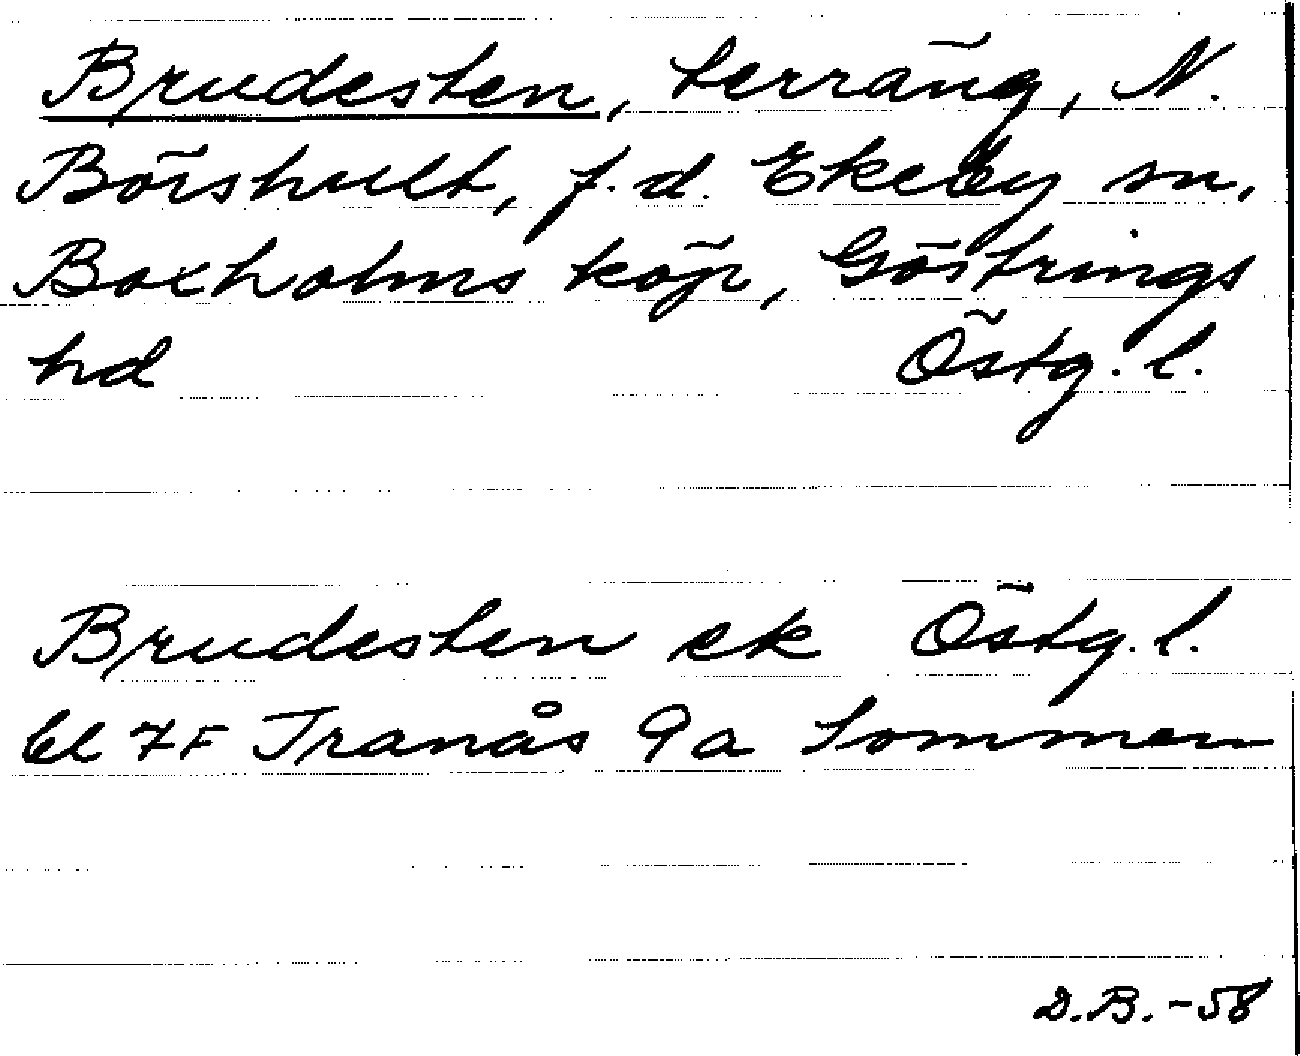 Brudesten, terräng, N.
Börshult, f.d. Ekeby sn,
Boxholms köp, Göstrings
hd Östg. l.
Brudesten ek Östg. l.
bl 7F Tranås 9a Sommen
D.B. -58